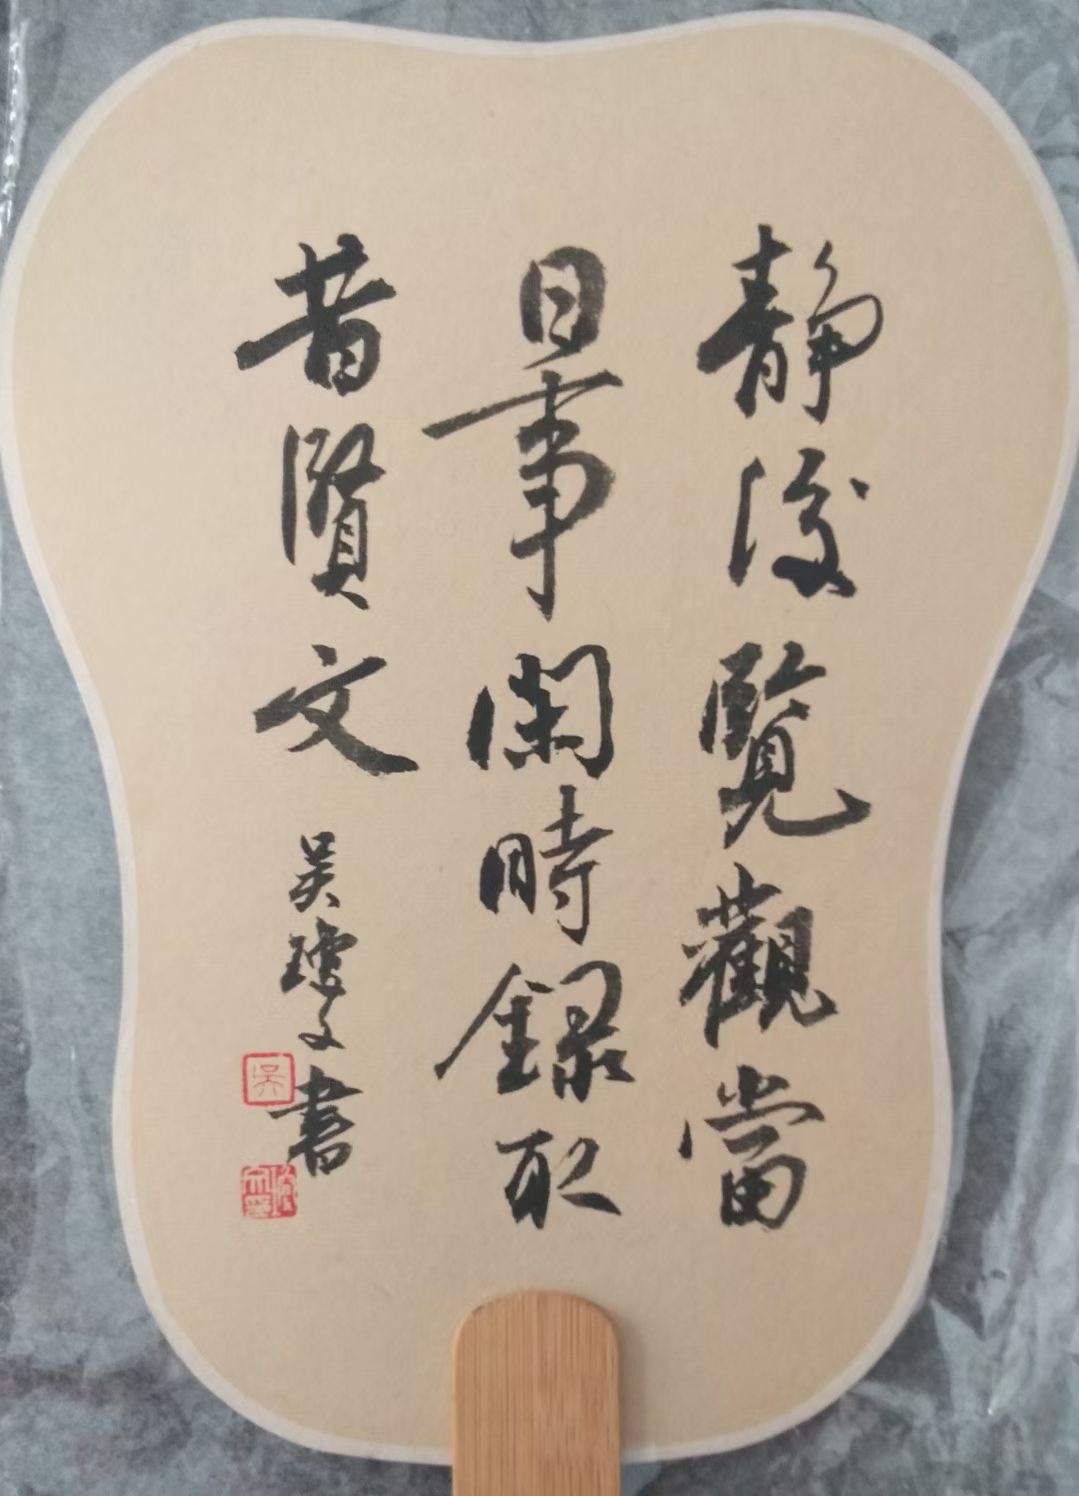 静後覽觀當
日事閑時錄取
昔賢文
吴瓊文書
吴